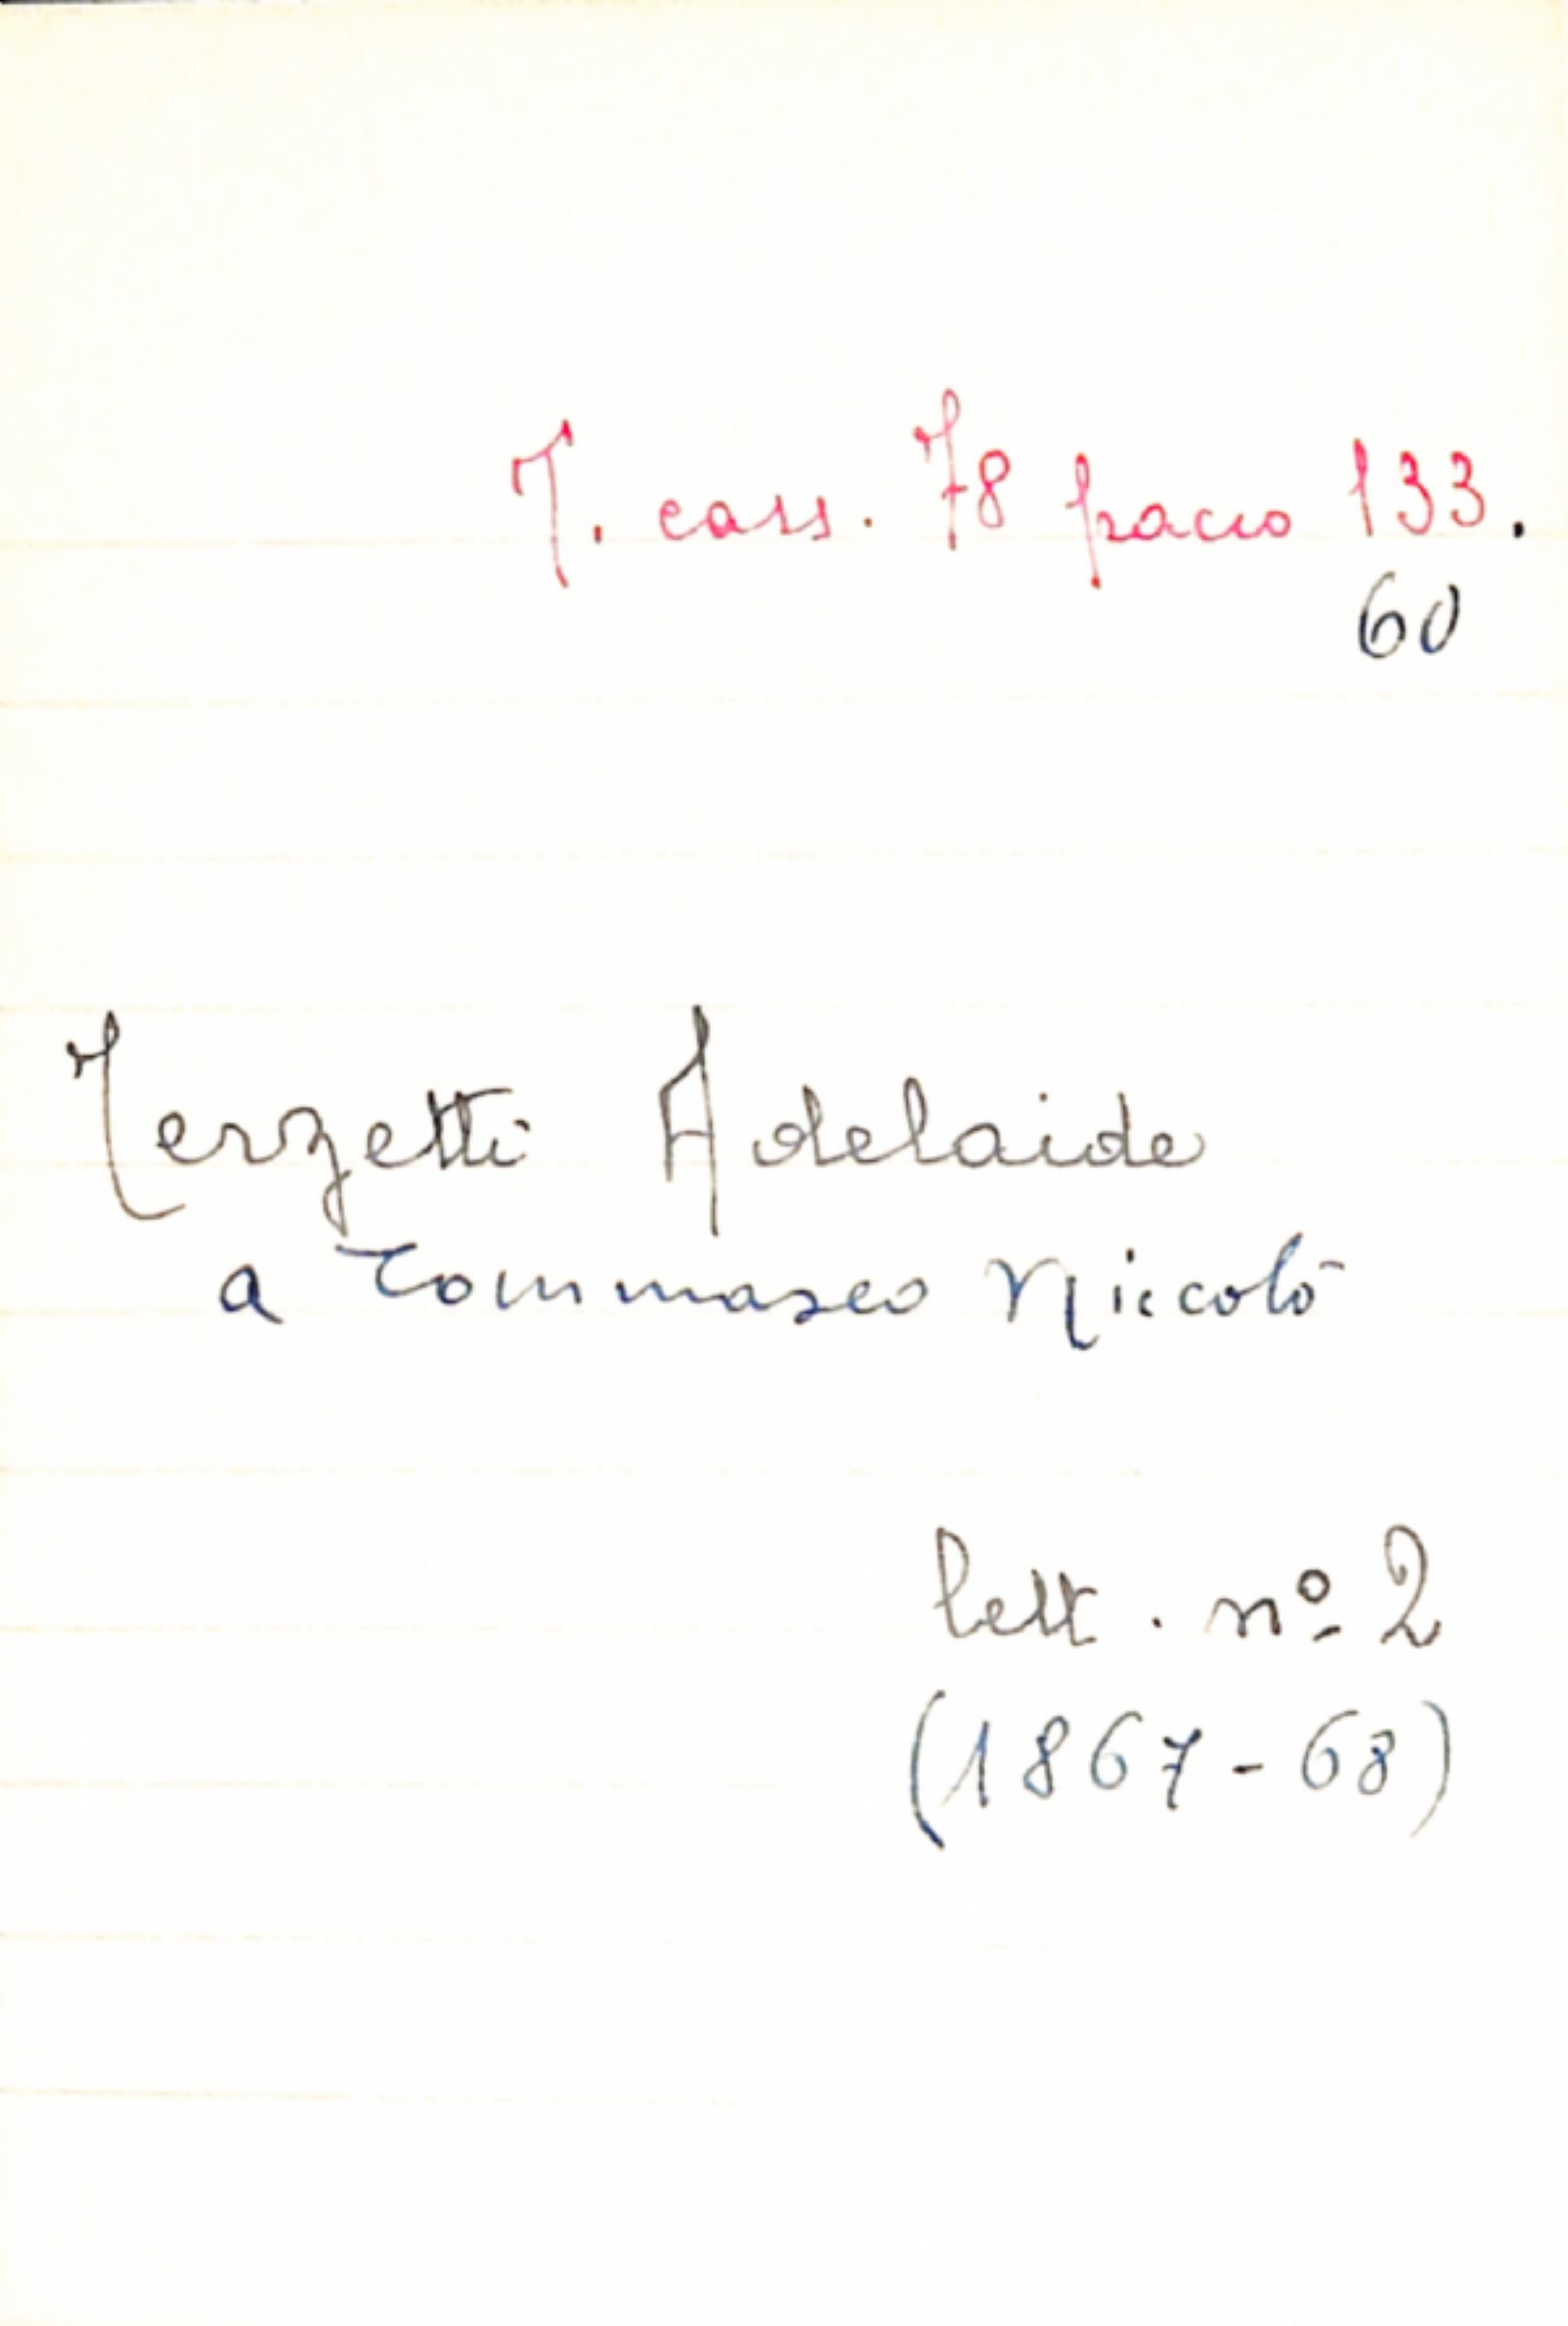 T. cass. 78 pacco 133.
60
Terzetti Adelaide
a Tommaseo Niccolò
lett. nº 2
(1867-68)